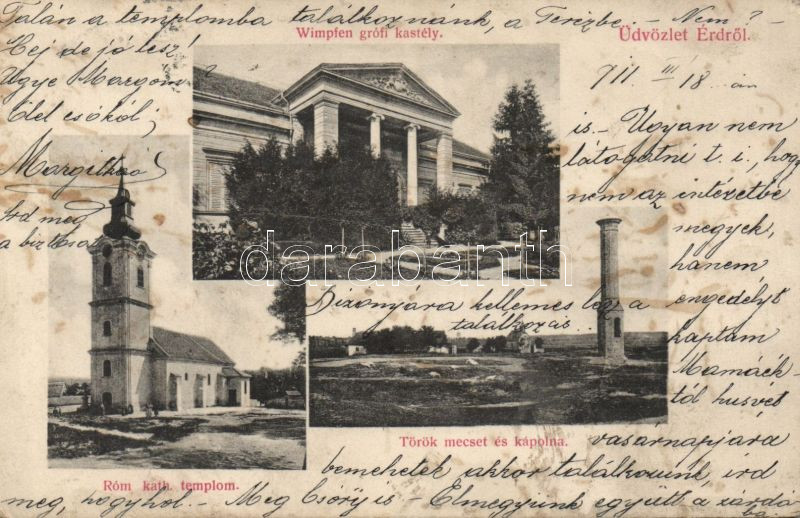 Talán a templomba találkoznánk, a Terézbe. - Nem? -
Ugye Margom?
Ölel csókol,
Margitkád
Írd meg
a biztosat
Wimpfen grófi kastély.
Üdvözlet Érdről.
911 III 18 án
is. - Ugyan nem
látogatni t. i., hogy
nem az intézetbe
megyek,
hanem
engedélyt
kaptam
Mamáék-
tól husvét
vasárnapjára
bemehetek akkor találkozunk, írd
meg, hogy hol. - Meg is - Elmegyünk együtt a zárdá
ba.
Bizonyára kellemes lesz a
találkozás
darabanth
Török mecset és kápolna.
Róm kath. templom.